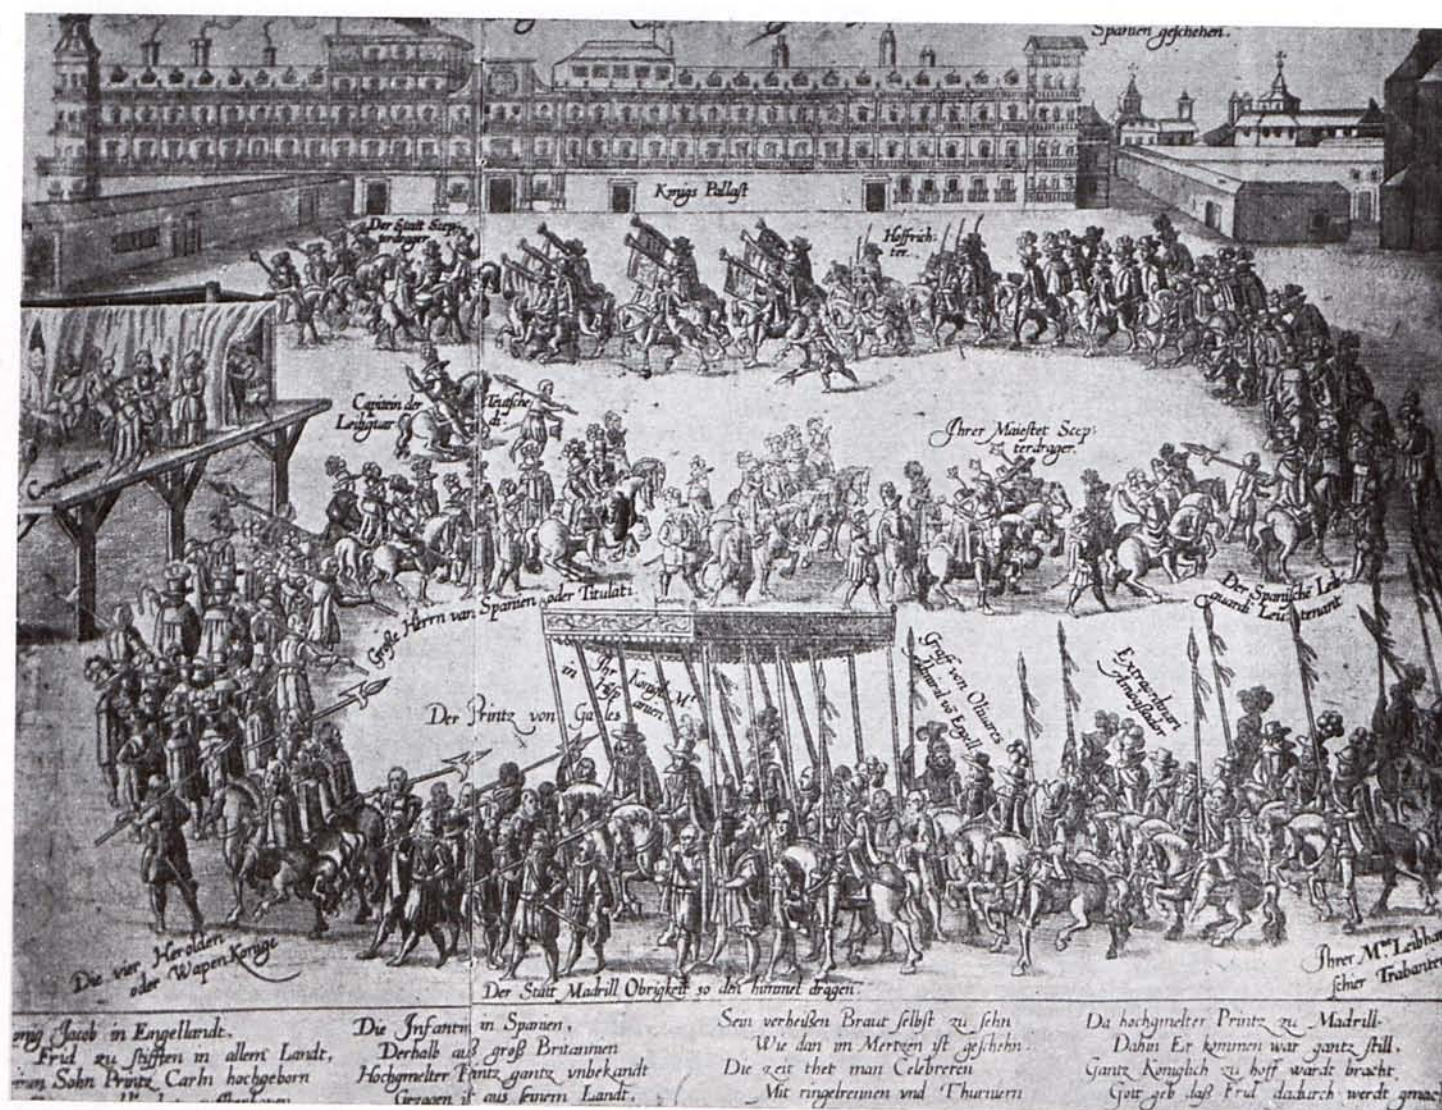 Spanien geschehen.
Konigs Pallast
Der Statt Scep-
terdrager
Hoffrich-
ter.
Capitein der
Leibguar
Teutsche
di
Ihrer Maiestet Scep:
terdrager.
Comedianten
Große Herrn van Spanien oder Titulati
Der Spanische Leib
guardi Leutenant
Der Printz von Galles
Ihr Konigl. Mt.
in Hispanien
Graff von Olivares
Admiral vō Engell
Extraordinari
Ambassador
Die vier Herolden
oder Wapen Konige
Der Statt Madrill Obrigkeit so den himmel dragen.
Ihrer Mtt. Leibhar
schier Trabanten
onig Jacob in Engellandt.
Frid zu stifften in allem Landt,
Sohn Printz Carln hochgeborn
Die Infantin in Spanien,
Derhalb auß groß Britannien
Hochgmelter Printz gantz vnbekandt
Gezogen ist aus seinem Landt,
Sein verheißen Braut selbst zu sehn
Wie dan im Mertzen ist geschehn.
Die zeit thet man Celebreren
Mit ringelrennen vnd Thurniern
Da hochgmelter Printz zu Madrill.
Dahin Er kommen war gantz still.
Gantz Koniglich zu hoff wardt bracht
Gott geb daß Frid dadurch werdt gmac